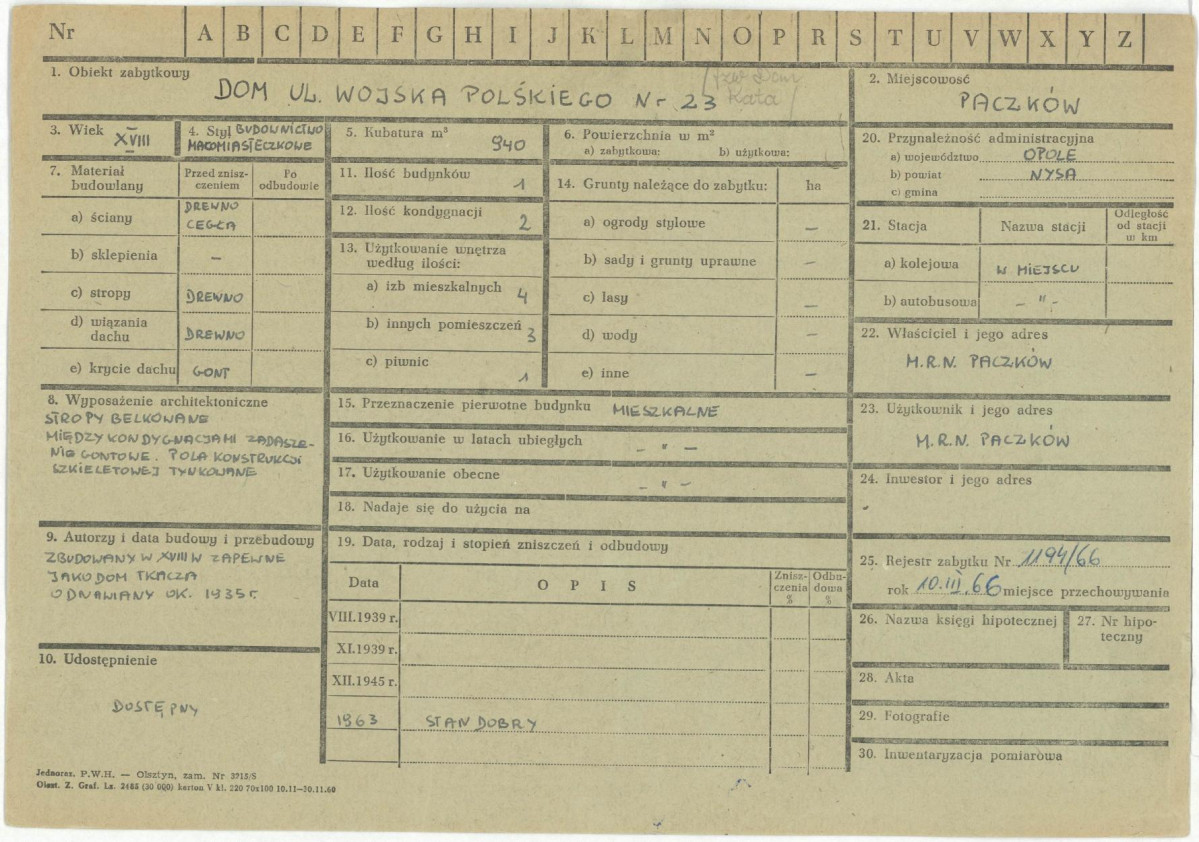 Nr A B C D E F G H I J K L M N O P R S T U V W X Y Z
1. Obiekt zabytkowy
DOM UL. WOJSKA POLSKIEGO Nr 23
Kata
2. Miejscowość
PACZKÓW
3. Wiek XVIII
4. Styl BUDOWNICTWO
MAŁOMIASTECZKOWE
5. Kubatura m³
940
6. Powierzchnia w m²
a) zabytkowa: b) użytkowa:
7. Materiał
budowlany
Przed znisz-
czeniem
Po
odbudowie
a) ściany DREWNO
CEGŁA
b) sklepienia –
c) stropy DREWNO
d) wiązania
dachu DREWNO
e) krycie dachu GONT
8. Wyposażenie architektoniczne
STROPY BELKOWANE
MIĘDZY KONDYGNACJAMI ZADASZE-
NIE GONTOWE. POLA KONSTRUKCJI
SZKIELETOWEJ TYNKOWANE
9. Autorzy i data budowy i przebudowy
ZBUDOWANY W XVIII W ZAPEWNE
JAKO DOM TKACZA
ODNAWIANY OK. 1935 r.
10. Udostępnienie
DOSTĘPNY
11. Ilość budynków
1
12. Ilość kondygnacji
2
13. Użytkowanie wnętrza
według ilości:
a) izb mieszkalnych 4
b) innych pomieszczeń 3
c) piwnic
1
14. Grunty należące do zabytku: ha
a) ogrody stylowe –
b) sady i grunty uprawne –
c) lasy –
d) wody –
e) inne –
15. Przeznaczenie pierwotne budynku MIESZKALNE
16. Użytkowanie w latach ubiegłych – " –
17. Użytkowanie obecne – " –
18. Nadaje się do użycia na
19. Data, rodzaj i stopień zniszczeń i odbudowy
Data OPIS Znisz-
czenia
%
Odbu-
dowa
%
VIII.1939 r.
XI.1939 r.
XII.1945 r.
1963 STAN DOBRY
20. Przynależność administracyjna
a) województwo OPOLE
b) powiat NYSA
c) gmina
21. Stacja Nazwa stacji Odległość
od stacji
w km
a) kolejowa W MIEJSCU
b) autobusowa – " –
22. Właściciel i jego adres
M.R.N. PACZKÓW
23. Użytkownik i jego adres
M.R.N. PACZKÓW
24. Inwestor i jego adres
25. Rejestr zabytku Nr 1194/66
rok 10.III.66 miejsce przechowywania
26. Nazwa księgi hipotecznej
27. Nr hipo-
teczny
28. Akta
29. Fotografie
30. Inwentaryzacja pomiarowa
Jednoraz. P.W.H. — Olsztyn, zam. Nr 3715/S
Olszt. Z. Graf. Ls. 2485 (30 000) karton V kl. 220 70x100 10.11—30.11.60